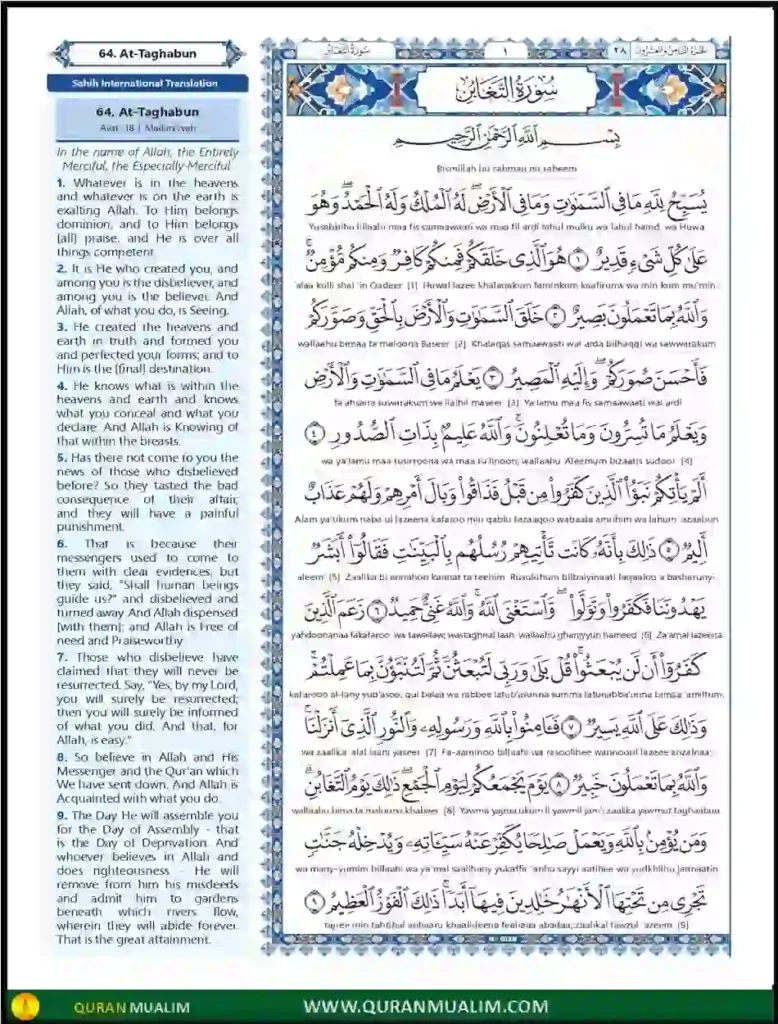 64. At-Taghabun
Sahih International Translation
64. At-Taghabun
Ayat 18 | Madaniyyah
In the name of Allah, the Entirely
Merciful, the Especially Merciful
1. Whatever is in the heavens
and whatever is on the earth is
exalting Allah. To Him belongs
dominion, and to Him belongs
[all] praise, and He is over all
things competent
2. It is He who created you, and
among you is the disbeliever, and
among you is the believer. And
Allah, of what you do, is Seeing.
3. He created the heavens and
earth in truth and formed you
and perfected your forms; and to
Him is the [final] destination.
4. He knows what is within the
heavens and earth and knows
what you conceal and what you
declare. And Allah is Knowing of
that within the breasts.
5. Has there not come to you the
news of those who disbelieved
before? So they tasted the bad
consequence of their affair,
and they will have a painful
punishment.
6. That is because their
messengers used to come to
them with clear evidences, but
they said, "Shall human beings
guide us?" and disbelieved and
turned away. And Allah dispensed
[with them]; and Allah is Free of
need and Praiseworthy
7. Those who disbelieve have
claimed that they will never be
resurrected. Say, "Yes, by my Lord,
you will surely be resurrected;
then you will surely be informed
of what you did. And that, for
Allah, is easy."
8. So believe in Allah and His
Messenger and the Qur'an which
We have sent down. And Allah is
Acquainted with what you do.
9. The Day He will assemble you
for the Day of Assembly - that
is the Day of Deprivation. And
whoever believes in Allah and
does righteousness - He will
remove from him his misdeeds
and admit him to gardens
beneath which rivers flow,
wherein they will abide forever.
That is the great attainment.
سُورَةُ التَّغَابُنِ ١ ٢٨ الجزء الثامن والعشرون
سُورَةُ التَّغَابُنِ
بِسْمِ اللَّهِ الرَّحْمَٰنِ الرَّحِيمِ
Bismillah hir rahman nir raheem
يُسَبِّحُ لِلَّهِ مَا فِي السَّمَٰوَٰتِ وَمَا فِي الْأَرْضِ ۖ لَهُ الْمُلْكُ وَلَهُ الْحَمْدُ ۖ وَهُوَ
Yusabbihu lillaahi maa fis samaawaati wa maa fil ardi lahul mulku wa lahul hamd, wa Huwa
عَلَىٰ كُلِّ شَيْءٍ قَدِيرٌ ١ هُوَ الَّذِي خَلَقَكُمْ فَمِنكُمْ كَافِرٌ وَمِنكُم مُّؤْمِنٌ ۚ
'alaa kulli shai 'in Qadeer [1] Huwal lazee khalaqakum faminkum kaafirunw wa min kum mu'min
وَاللَّهُ بِمَا تَعْمَلُونَ بَصِيرٌ ٢ خَلَقَ السَّمَٰوَٰتِ وَالْأَرْضَ بِالْحَقِّ وَصَوَّرَكُمْ
wallaahu bimaa ta'maloona Baseer [2] Khalaqas samaawaati wal arda bilhaqqi wa sawwarakum
فَأَحْسَنَ صُوَرَكُمْ ۖ وَإِلَيْهِ الْمَصِيرُ ٣ يَعْلَمُ مَا فِي السَّمَٰوَٰتِ وَالْأَرْضِ
fa ahsana suwarakum wa ilaihil maseer [3] Ya'lamu maa fis samaawaati wal ardi
وَيَعْلَمُ مَا تُسِرُّونَ وَمَا تُعْلِنُونَ ۚ وَاللَّهُ عَلِيمٌ بِذَاتِ الصُّدُورِ ٤
wa ya'lamu maa tusirroona wa maa tu'linoon; wallaahu 'Aleemum bizaatis sudoor [4]
أَلَمْ يَأْتِكُمْ نَبَؤُا الَّذِينَ كَفَرُوا مِن قَبْلُ فَذَاقُوا وَبَالَ أَمْرِهِمْ وَلَهُمْ عَذَابٌ
Alam ya'tikum naba ul lazeena kafaroo min qablu fazaaqoo wabaala amrihim wa lahum 'azaabun
أَلِيمٌ ٥ ذَٰلِكَ بِأَنَّهُ كَانَت تَّأْتِيهِمْ رُسُلُهُم بِالْبَيِّنَٰتِ فَقَالُوا أَبَشَرٌ
aleem [5] Zaalika bi annahoo kaanat ta'teehim Rusuluhum bilbaiyinaati faqaaloo a basharuny-
يَهْدُونَنَا فَكَفَرُوا وَتَوَلَّوا ۚ وَّاسْتَغْنَى اللَّهُ ۚ وَاللَّهُ غَنِيٌّ حَمِيدٌ ٦ زَعَمَ الَّذِينَ
yahdoonanaa fakafaroo wa tawallaw; wastaghnal laah; wallaahu ghaniyyun hameed [6] Za'amal lazeena
كَفَرُوا أَن لَّن يُبْعَثُوا ۚ قُلْ بَلَىٰ وَرَبِّي لَتُبْعَثُنَّ ثُمَّ لَتُنَبَّؤُنَّ بِمَا عَمِلْتُمْ ۚ
kafarooo al-lany yub'asoo; qul balaa wa rabbee latub'asunna summa latunabba'unna bimaa 'amiltum;
وَذَٰلِكَ عَلَى اللَّهِ يَسِيرٌ ٧ فَـَٔامِنُوا بِاللَّهِ وَرَسُولِهِ وَالنُّورِ الَّذِي أَنزَلْنَا ۚ
wa zaalika 'alal laahi yaseer [7] Fa-aaminoo billaahi wa rasoolihee wannooril lazeee anzalnaa;
وَاللَّهُ بِمَا تَعْمَلُونَ خَبِيرٌ ٨ يَوْمَ يَجْمَعُكُمْ لِيَوْمِ الْجَمْعِ ۖ ذَٰلِكَ يَوْمُ التَّغَابُنِ ۗ
wallaahu bima ta'maloona khabeer [8] Yawma yajma'ukum li yawmil jam'i zaalika yawmut taghaabun
وَمَن يُؤْمِنۢ بِاللَّهِ وَيَعْمَلْ صَٰلِحًا يُكَفِّرْ عَنْهُ سَيِّـَٔاتِهِ وَيُدْخِلْهُ جَنَّٰتٍ
wa many-yumim billaahi wa ya'mal saalihany yukaffir 'anhu sayyi aatihee wa yudkhilhu jannaatin
تَجْرِي مِن تَحْتِهَا الْأَنْهَٰرُ خَٰلِدِينَ فِيهَا أَبَدًا ۚ ذَٰلِكَ الْفَوْزُ الْعَظِيمُ ٩
tajree min tahtihal anhaaru khaalideena feehaaa abadaa; zaalikal fawzul 'azeem [9]
QURAN MUALIM WWW.QURANMUALIM.COM